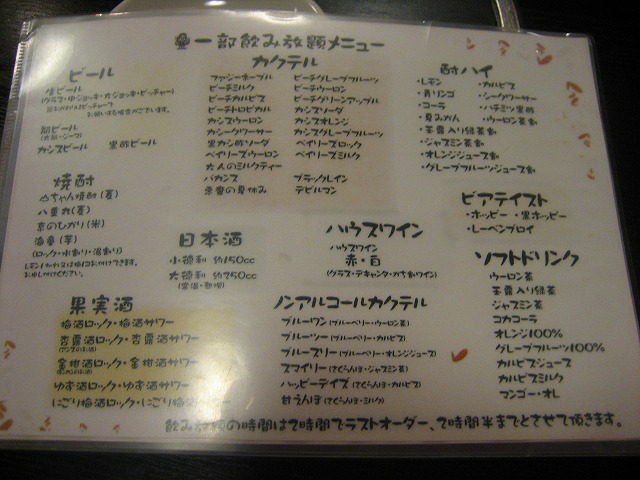 一部飲み放題メニュー
ビール
生ビール
(グラス・中ジョッキ・大ジョッキ・ピッチャー)
瓶ビール
カシスビール 黒酢ビール
焼酎
山ちゃん焼酎(麦)
八重丸(麦)
京のひかり(米)
海童(芋)
(ロック・水割り・湯割り)
お申し付けください。
カクテル
ファジーネーブル
ピーチミルク
ピーチカルピス
ピーチトロピカル
カシスウーロン
カシークワサー
黒カシ酢ソーダ
ベイリーズウーロン
大人のミルクティー
バカンス
楽園の夏休み
ピーチグレープフルーツ
ピーチウーロン
ピーチグリーンアップル
カシスソーダ
カシスオレンジ
カシスグレープフルーツ
ベイリーズロック
ベイリーズミルク
ブラックレイン
デビルマン
酎ハイ
・レモン
・青リンゴ
・コーラ
・夏みかん
・玉露入り緑茶割
・ジャスミン茶割
・オレンジジュース割
・グレープフルーツジュース割
・カルピス
・シークワサー
・ハチミツ黒酢
・ウーロン茶割
ビアテイスト
・ホッピー ・黒ホッピー
・レーベンブロイ
日本酒
小徳利 約150cc
大徳利 約250cc
(常温・熱燗)
ハウスワイン
ハウスワイン
赤・白
(グラス・デキャンタ・かち割ワイン)
ソフトドリンク
ウーロン茶
玉露入り緑茶
ジャスミン茶
コカコーラ
オレンジ100%
グレープフルーツ100%
カルピスジュース
カルピスミルク
マンゴー・オレ
果実酒
梅酒ロック・梅酒サワー
杏露酒ロック・杏露酒サワー
金柑酒ロック・金柑酒サワー
ゆず酒ロック・ゆず酒サワー
にごり梅酒ロック・にごり梅酒サワー
ノンアルコールカクテル
ブルーワン(ブルーベリー・ウーロン茶)
ブルーツー(ブルーベリー・カルピス)
ブルースリー(ブルーベリー・オレンジジュース)
スマイリー(さくらんぼ・ジャスミン茶)
ハッピーデイズ(さくらんぼ・カルピス)
甘えんぼ(さくらんぼ・ミルク)
飲み放題の時間は2時間でラストオーダー、2時間半までとさせて頂きます。